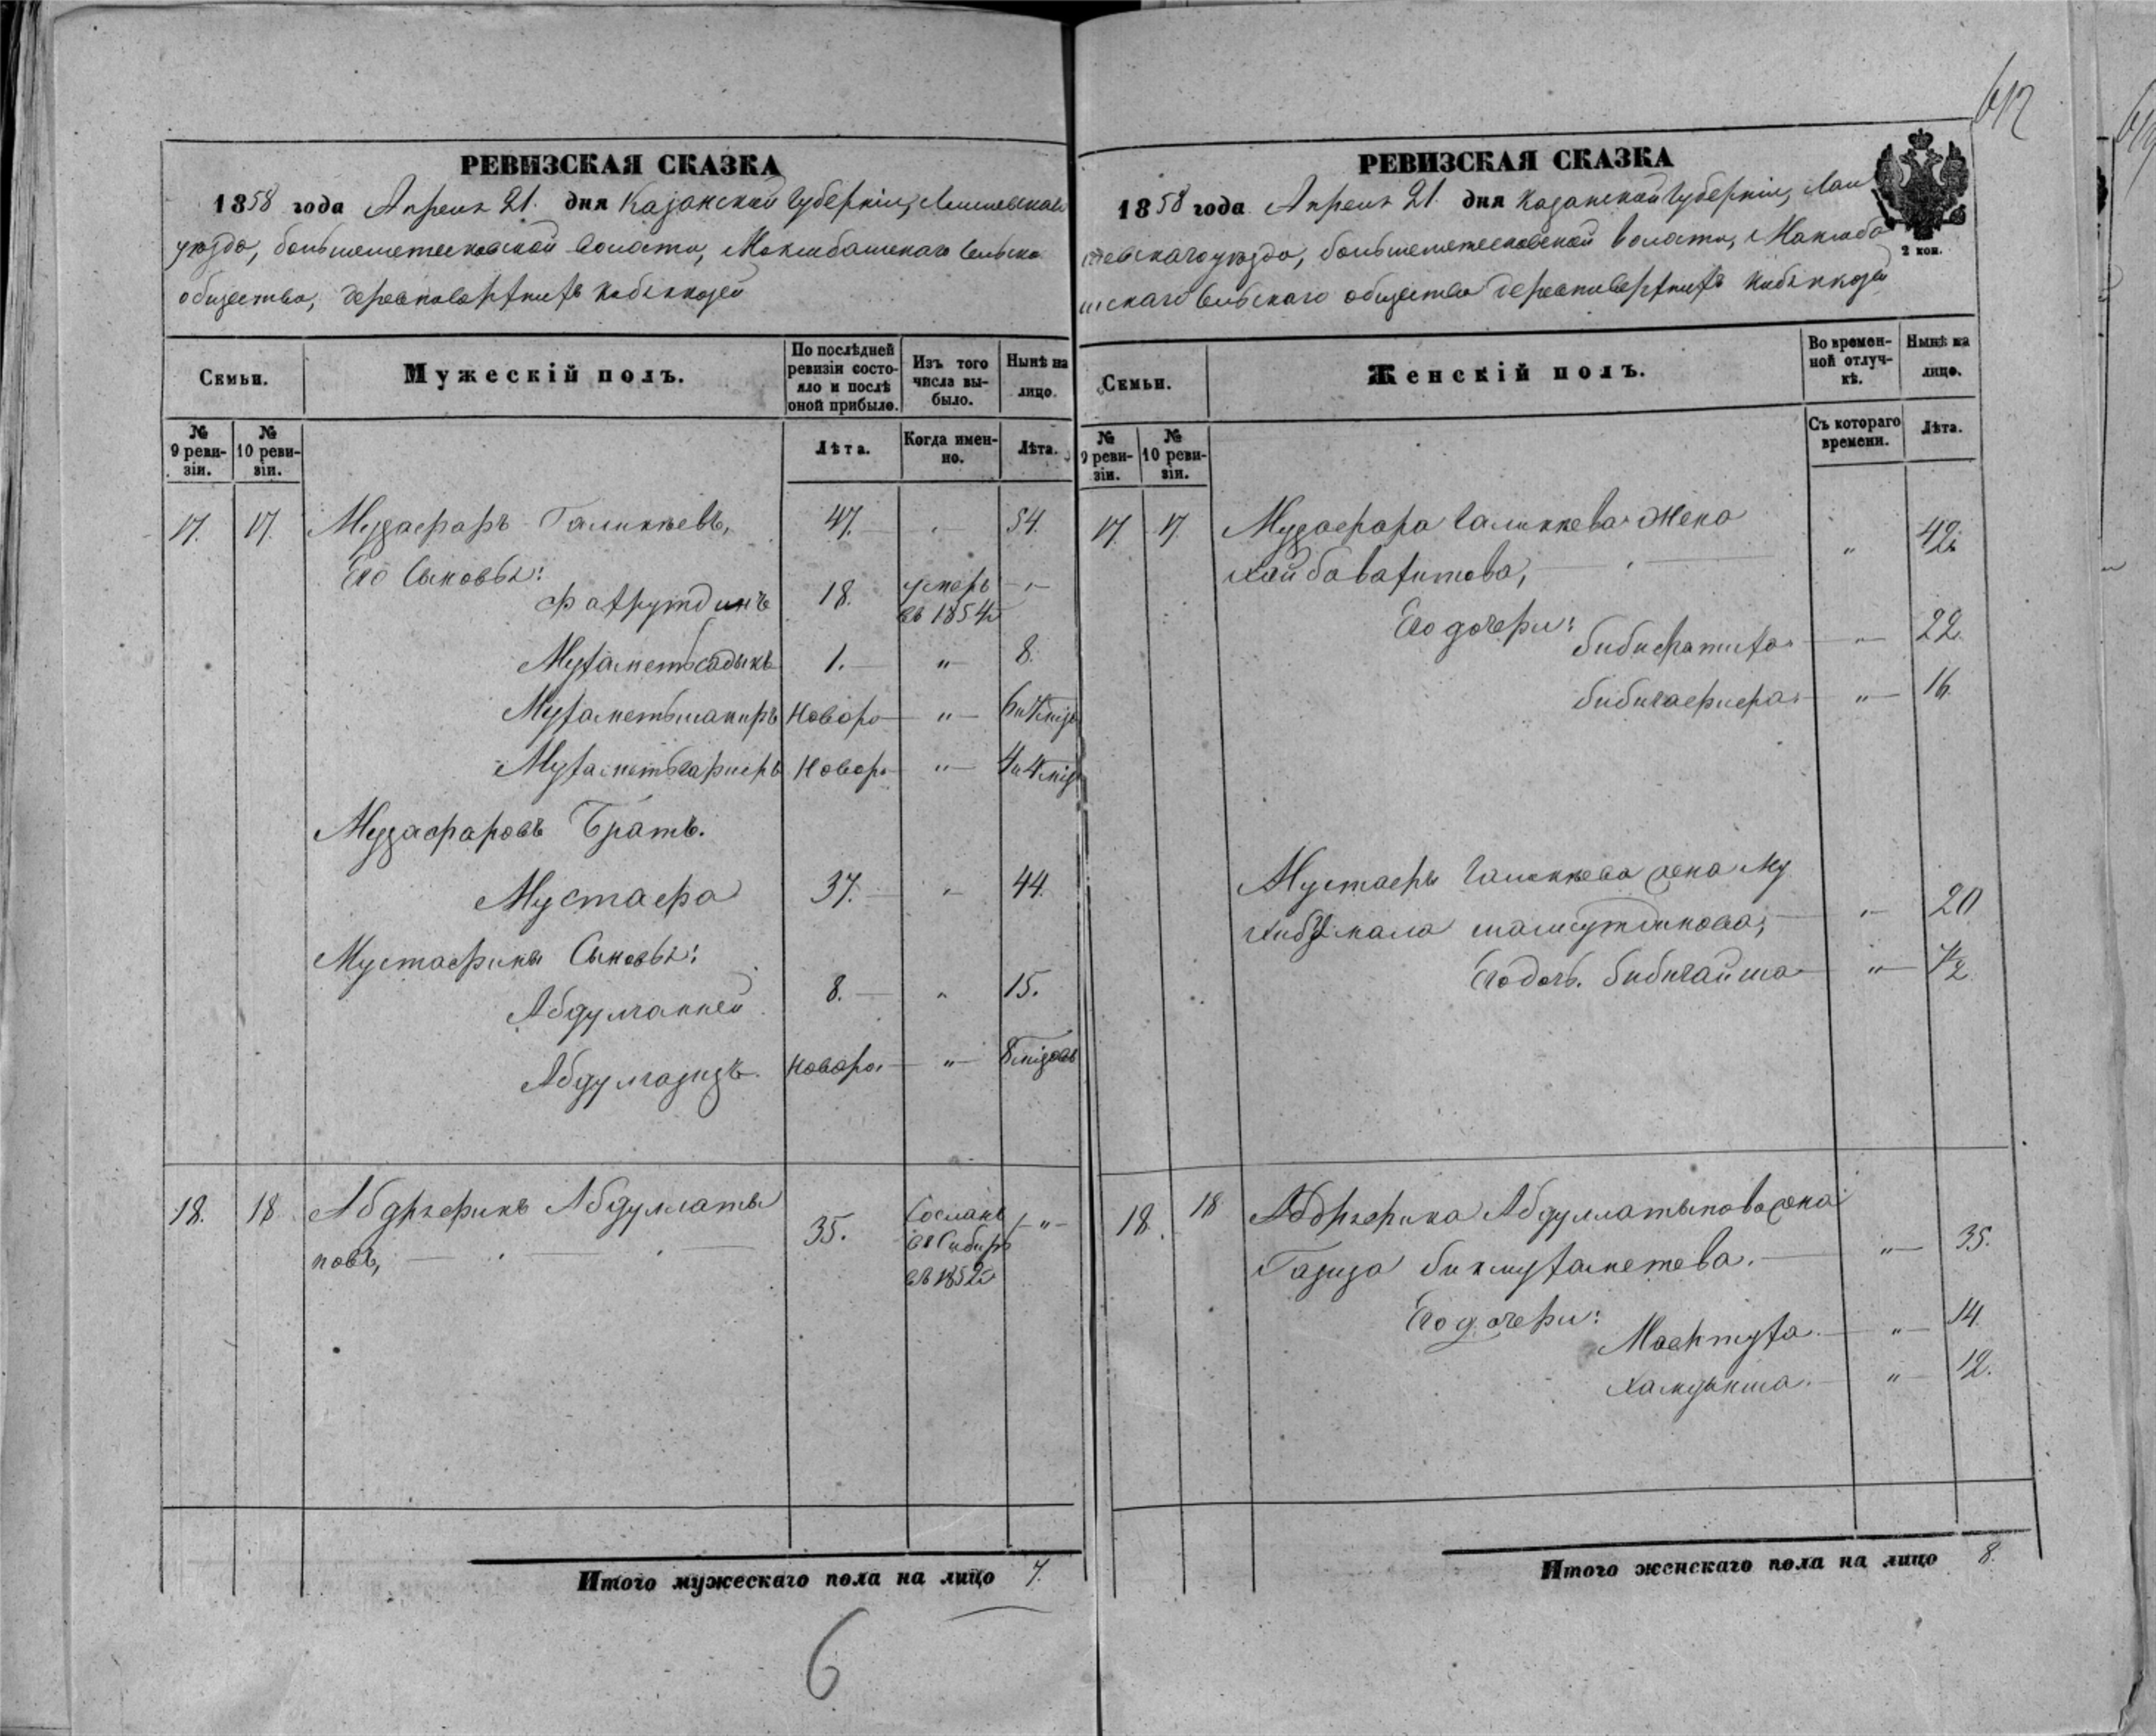 612
РЕВИЗСКАЯ СКАЗКА
1858 года Апреля 21. дня Казанской Губерніи, Лаишевскаго
уѣзда, большеметесковской волости, Сельска
общества, деревни Верхнихъ Кибякъкозей
Семьи.
Мужескій полъ.
По послѣдней ревизіи состояло и послѣ оной прибыло.
Изъ того числа выбыло.
Нынѣ на лицо.
№ 9 ревизіи.
№ 10 ревизіи.
Лѣта.
Когда именно.
Лѣта.
17. 17. Музафаръ Галикѣевъ, 47. 54.
Его Сыновья:
Фахрутдинъ 18. умеръ въ 1854 "
Мухаметьсадыкъ 1. " 8.
Мухаметьшакиръ Новоро "
Мухаметьзарифъ Новоро "
Музафаровъ Братъ.
Мустафа 37. " 44.
Мустафины Сыновья:
Абдулганней 8. " 15.
Абдулгазизъ Новоро "
18. 18 Абдряфикъ Абдуллаты
повъ, 35. Сосланъ в Сибирь въ 1852 "
Итого мужескаго пола на лицо 7.
6
РЕВИЗСКАЯ СКАЗКА
1858 года Апреля 21. дня Казанской Губерніи, Лаи
шевскаго уѣзда, большеметесковской волости,
шскаго Сельскаго общества деревни Верхнихъ Кибякъкозей
2 коп.
Семьи.
Женскій полъ.
Во временной отлучкѣ.
Нынѣ на лицо.
№ 9 ревизіи.
№ 10 ревизіи.
Съ котораго времени.
Лѣта.
17. 17. Музафара Галикѣева Жена
" 42.
Его дочери:
Бибифатиха " 22.
" 16.
Мустафы Галикѣева жена Му
" 20
Его дочь. Бибигайша " 1/2
18. 18 Абдряфика Абдуллатыпова жена
Газиза Бикмухаметева. " 35.
Его дочери:
Мафтуха " 14.
" 12.
Итого женскаго пола на лицо 8.